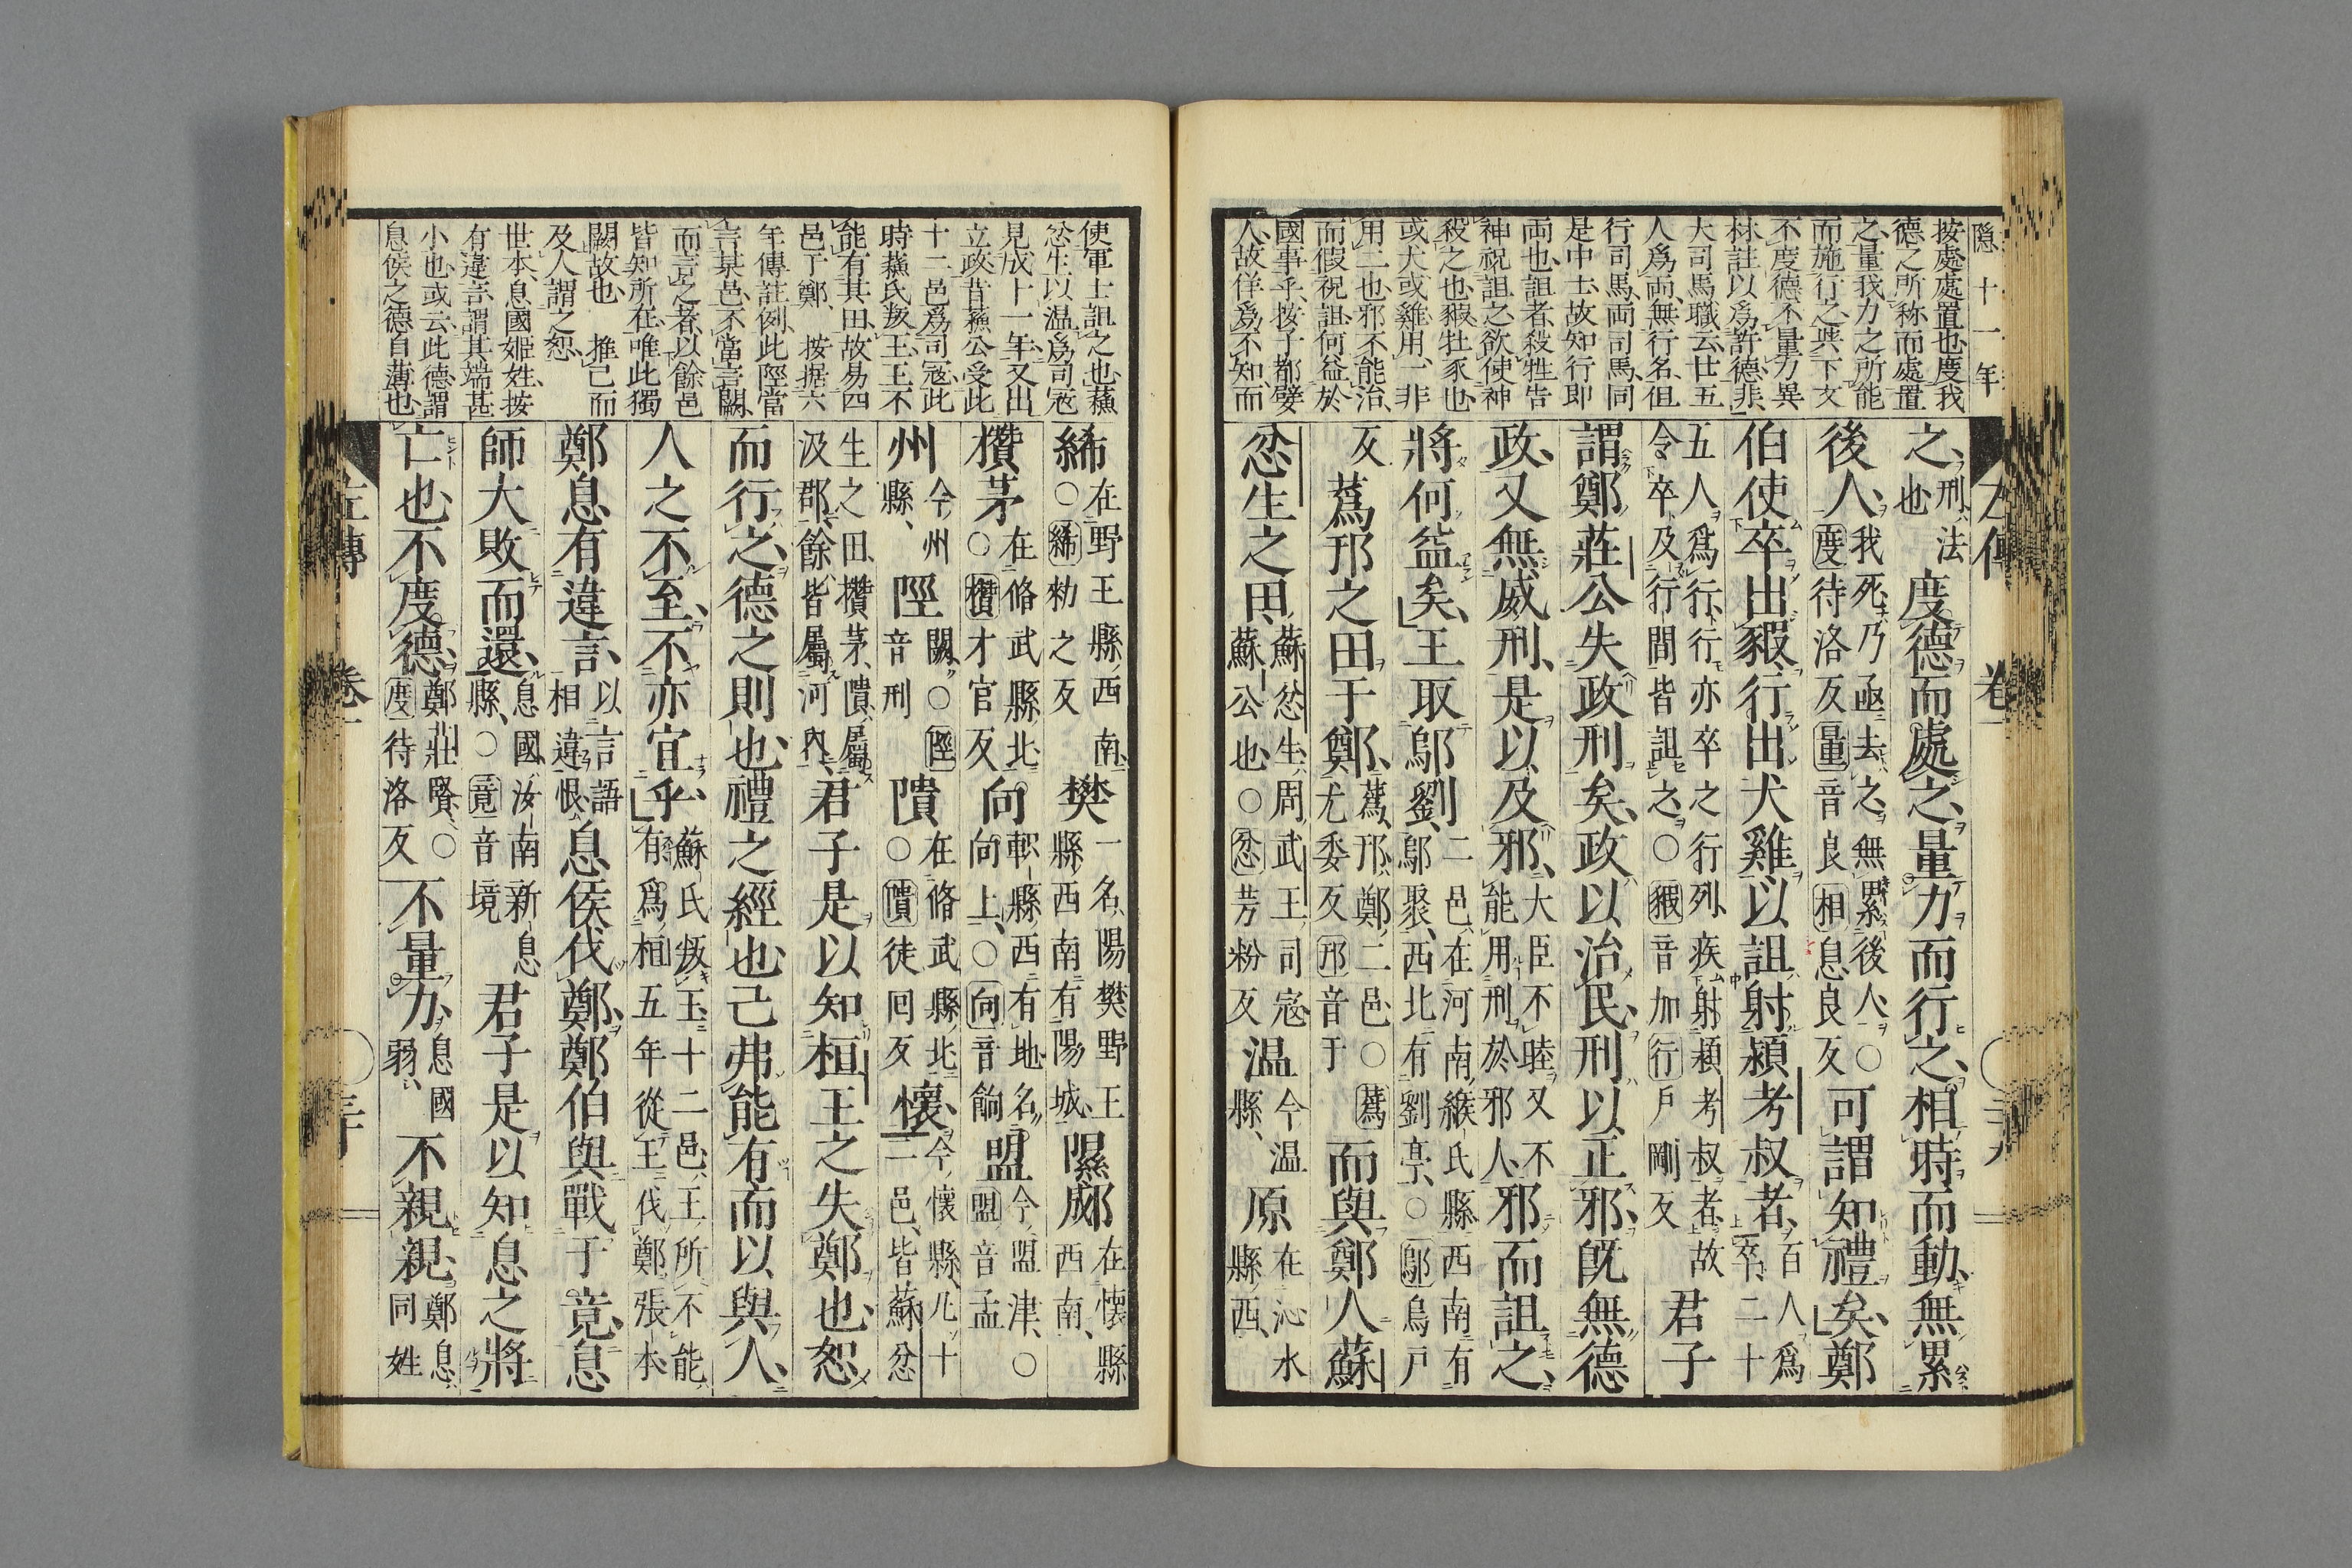 隱十一年
按處處置也度我
德之所称而處置
之量我力之所能
而施行之與下文
不度德不量力異
林註以爲許德非
大司馬職云廿五
人爲兩無行名但
行司馬兩司馬同
是中士故知行即
兩也詛者殺牲告
神祝詛之欲使神
殺之也豭牡豕也
或犬或雞用一非
用二也邪不能治
而假祝詛何益於
國事乎按子都嬖
人故佯爲不知而
左傳 卷一
之刑法也度德而處之量力而行之相時而動無累
後人我死乃亟去之無累後人○度待洛反量音良相息良反可謂知禮矣鄭
伯使卒出豭行出犬雞以詛射潁考叔者百人爲卒二十
五人爲行行亦卒之行列疾射潁考叔者故令卒及行間皆詛之○豭音加行戶剛反君子
謂鄭莊公失政刑矣政以治民刑以正邪旣無德
政又無威刑是以及邪大臣不睦又不能用刑於邪人邪而詛之
將何益矣王取鄔劉二邑在河南緱氏縣西南有鄔聚西北有劉亭○鄔烏戶
反蔿邘之田于鄭蔿邘鄭二邑○蔿尤委反邘音于而與鄭人蘇
忿生之田蘇忿生周武王司寇蘇公也○忿芳粉反温今温縣原在沁水縣西
使軍士詛之也蘇
忿生以温爲司寇
見成十一年又出
立政昔蘓公受此
十二邑爲司寇此
時蘓氏叛王王不
能有其田故易四
邑于鄭 按据六
年傳註例此陘當
言某邑不當言闕
而言之者以餘邑
皆知所在唯此獨
闕故也 推己而
及人謂之恕
世本息國姬姓按
有違言謂其端甚
小也或云此德謂
息侯之德自薄也
絺在野王縣西南○絺勑之反樊一名陽樊野王縣西南有陽城隰郕在懷縣西南
欑茅在脩武縣北○欑才官反向軹縣西有地名向上○向音餉盟今盟津○盟音孟
州今州縣陘闕○陘音刑隤在脩武縣北○隤徒囘反懷今懷縣凡十二邑皆蘇忿
生之田欑茅隤屬汲郡餘皆屬河內君子是以知桓王之失鄭也恕
而行之德之則也禮之經也己弗能有而以與人
人之不至不亦宜乎蘇氏叛王十二邑王所不能有爲桓五年從王伐鄭張本
鄭息有違言以言語相違恨息侯伐鄭鄭伯與戰于竟息
師大敗而還息國汝南新息縣○竟音境君子是以知息之將
亡也不度德鄭莊賢○度待洛反不量力息國弱不親親鄭息同姓
左傳 卷一